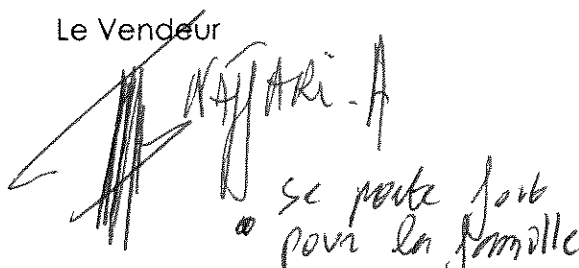 Le Vendeur
NAJJARi - A
se porte fort
pour la famille